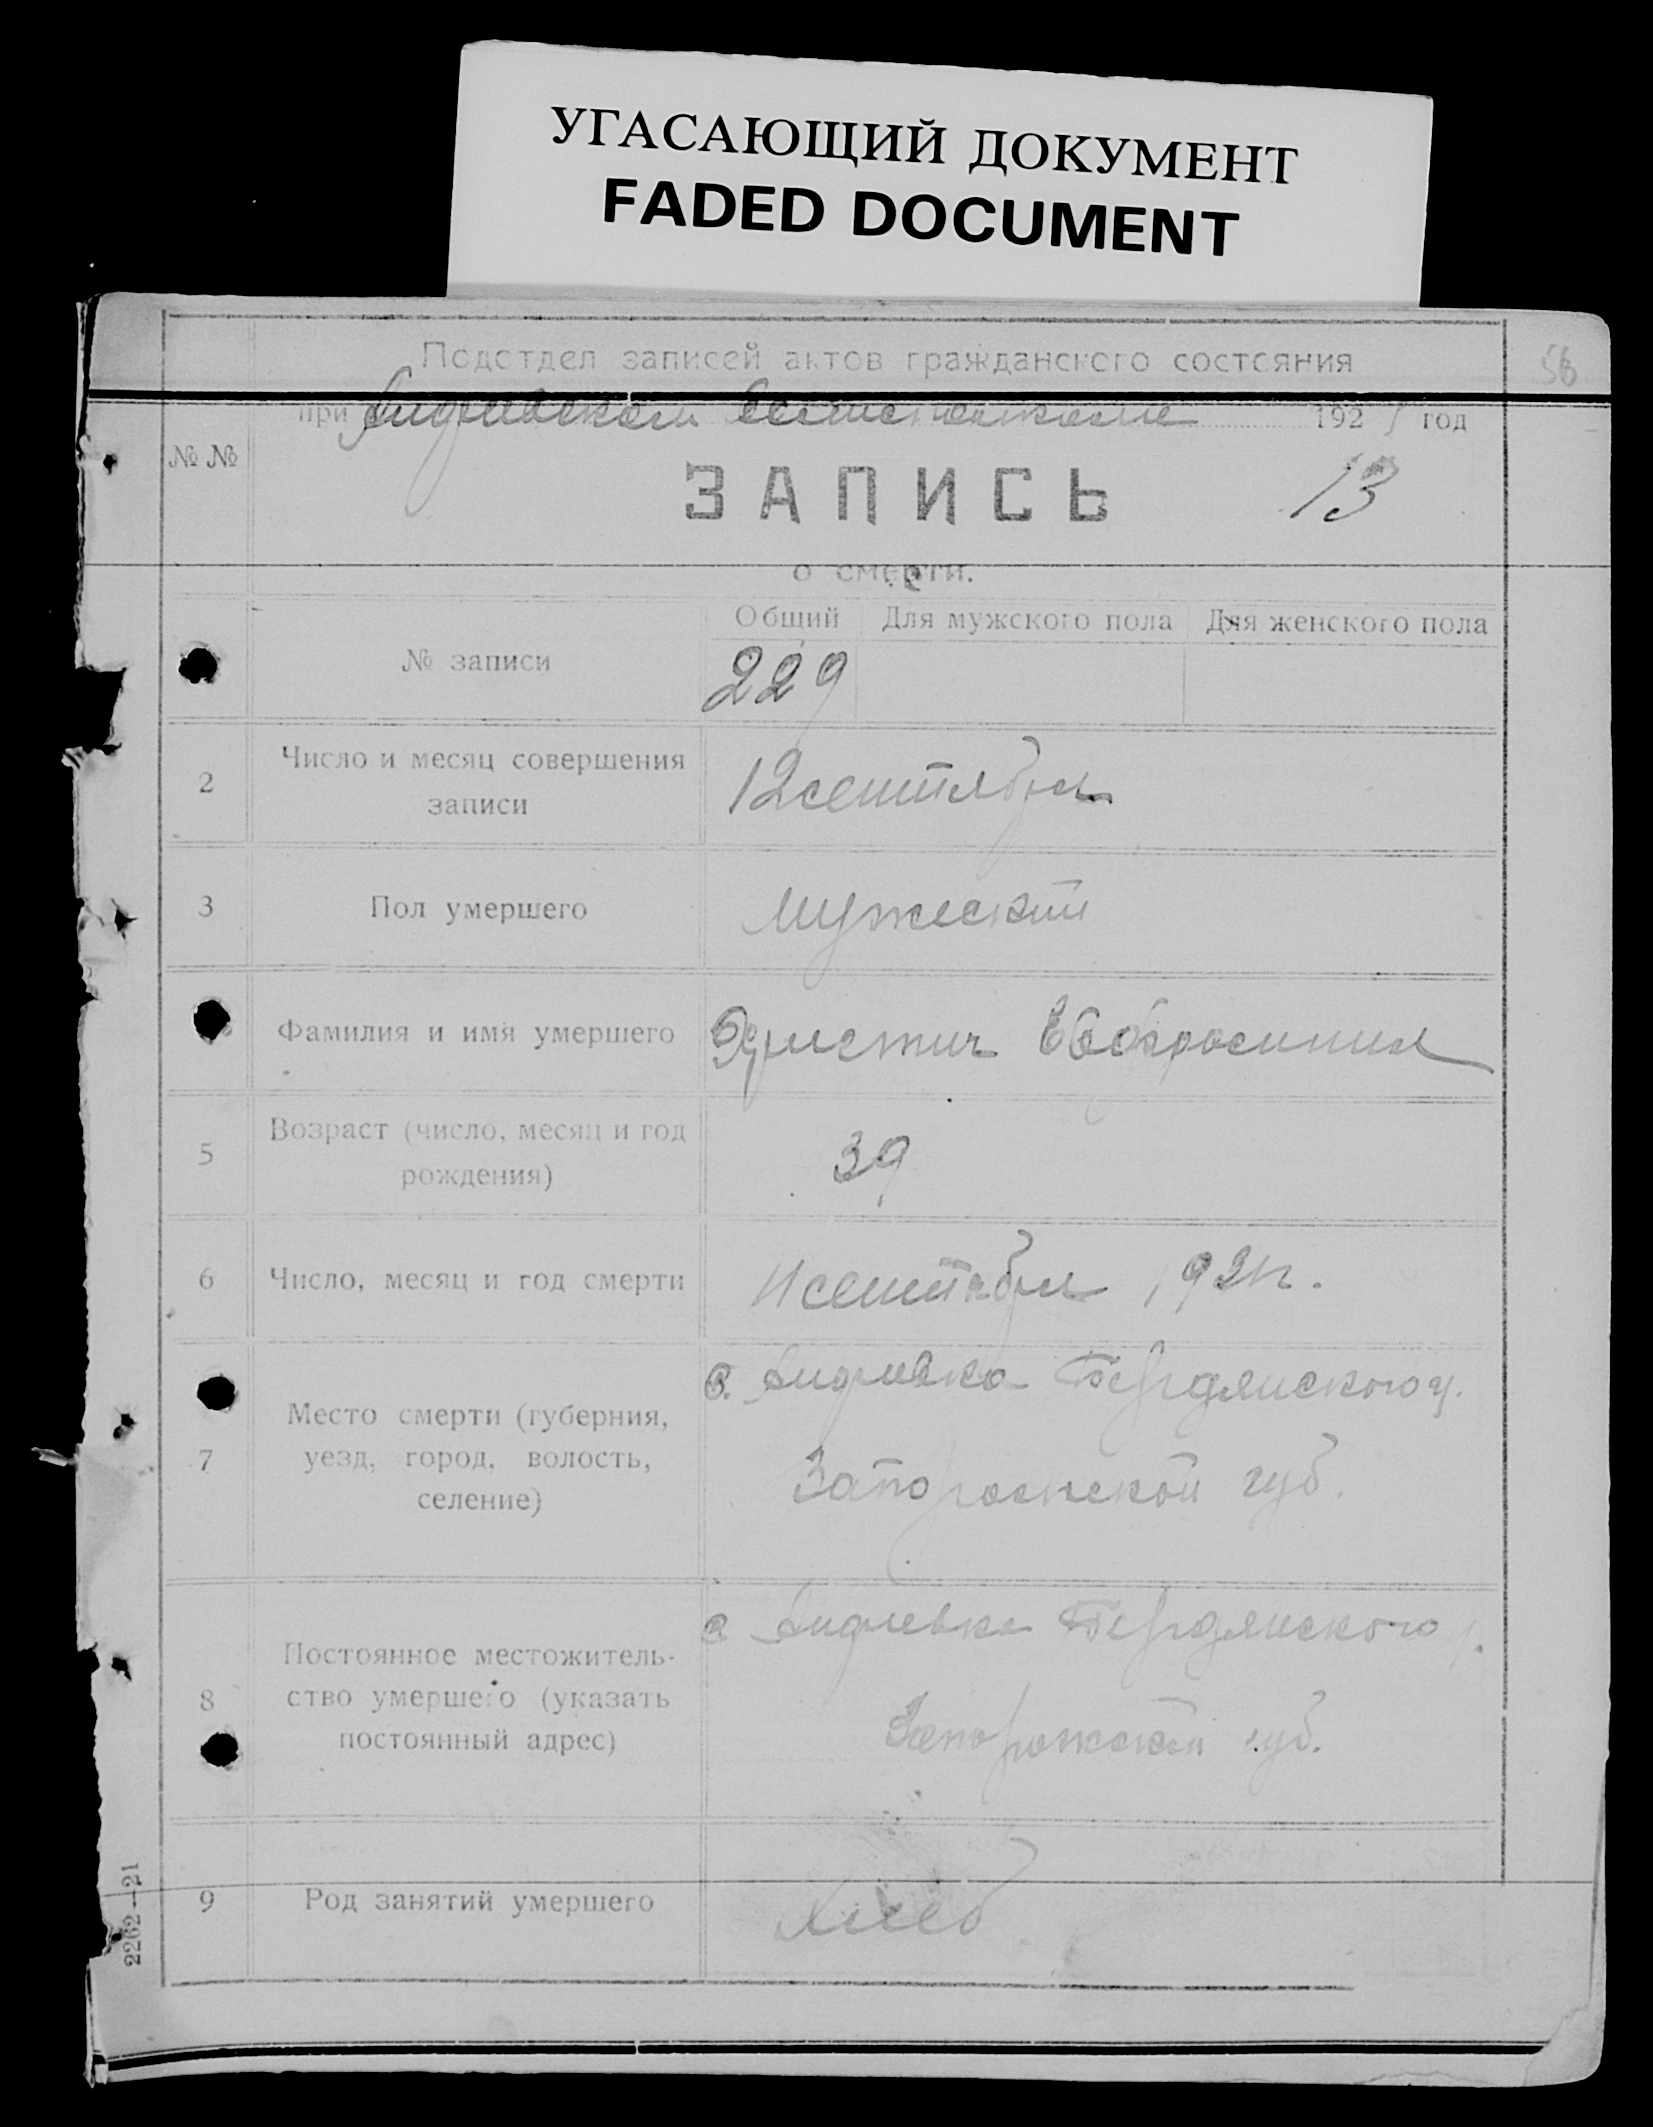 УГАСАЮЩИЙ ДОКУМЕНТ
FADED DOCUMENT
Подотдел записей актов гражданского состояния
58
при 192 год
№ №
ЗАПИСЬ
13
о смерти.
Общий Для мужского пола Для женского пола
№ записи
229
2 Число и месяц совершения
записи
12 сентября
3 Пол умершего мужеский
Фамилия и имя умершего
5 Возраст (число, месяц и год
рождения)
39
6 Число, месяц и год смерти 11 сентября 1921 г.
7 Место смерти (губерния,
уезд, город, волость,
селение)
с. Андревка Бердянского у.
Запорожской губ.
8 Постоянное местожитель-
ство умершего (указать
постоянный адрес)
с Андревка Бердянского
Запорожской губ.
9 Род занятий умершего хлеб
2262—21